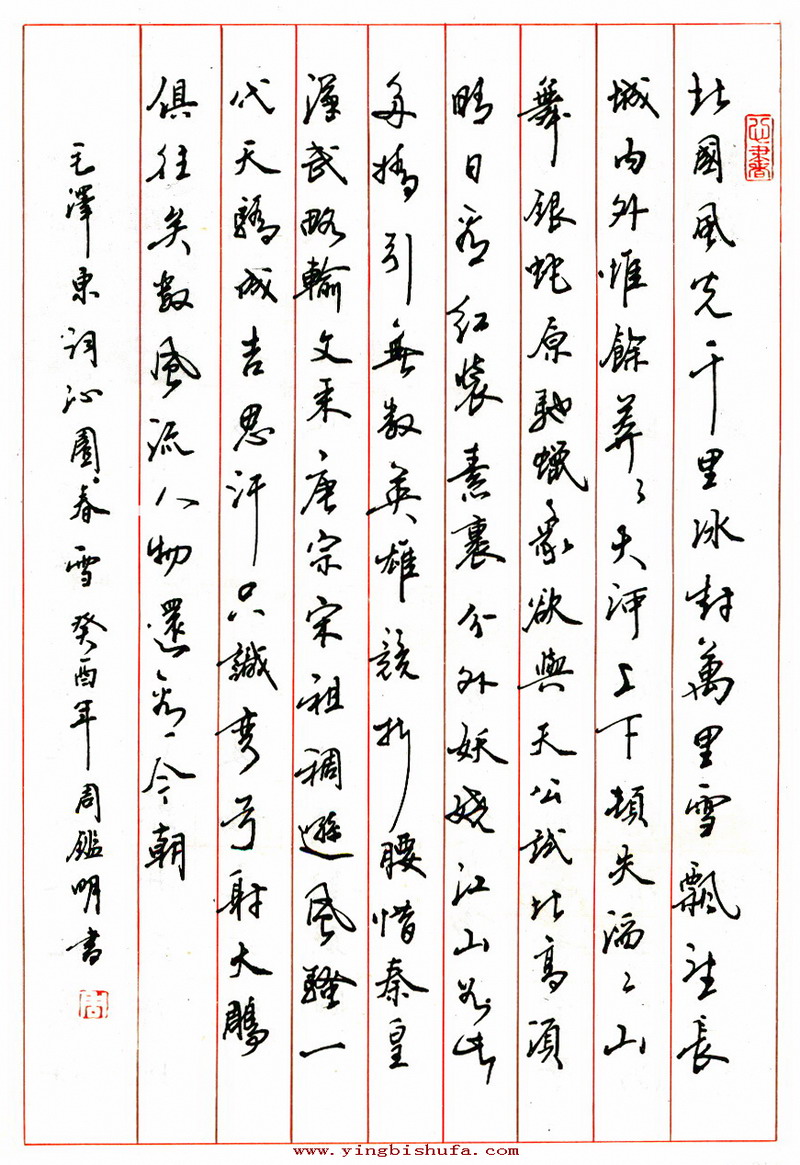 北國風光千里冰封萬里雪飄望長
城内外惟餘莽々大河上下頓失滔々山
舞銀蛇原馳蠟象欲與天公試比高須
晴日看紅裝素裹分外妖嬈江山如此
多嬌引無數英雄競折腰惜秦皇
漢武略輸文采唐宗宋祖稍遜風騷一
代天驕成吉思汗只識彎弓射大鵰
俱往矣數風流人物還看今朝
毛澤東詞沁園春雪 癸酉年 周鑑明書
周
www.yingbishufa.com